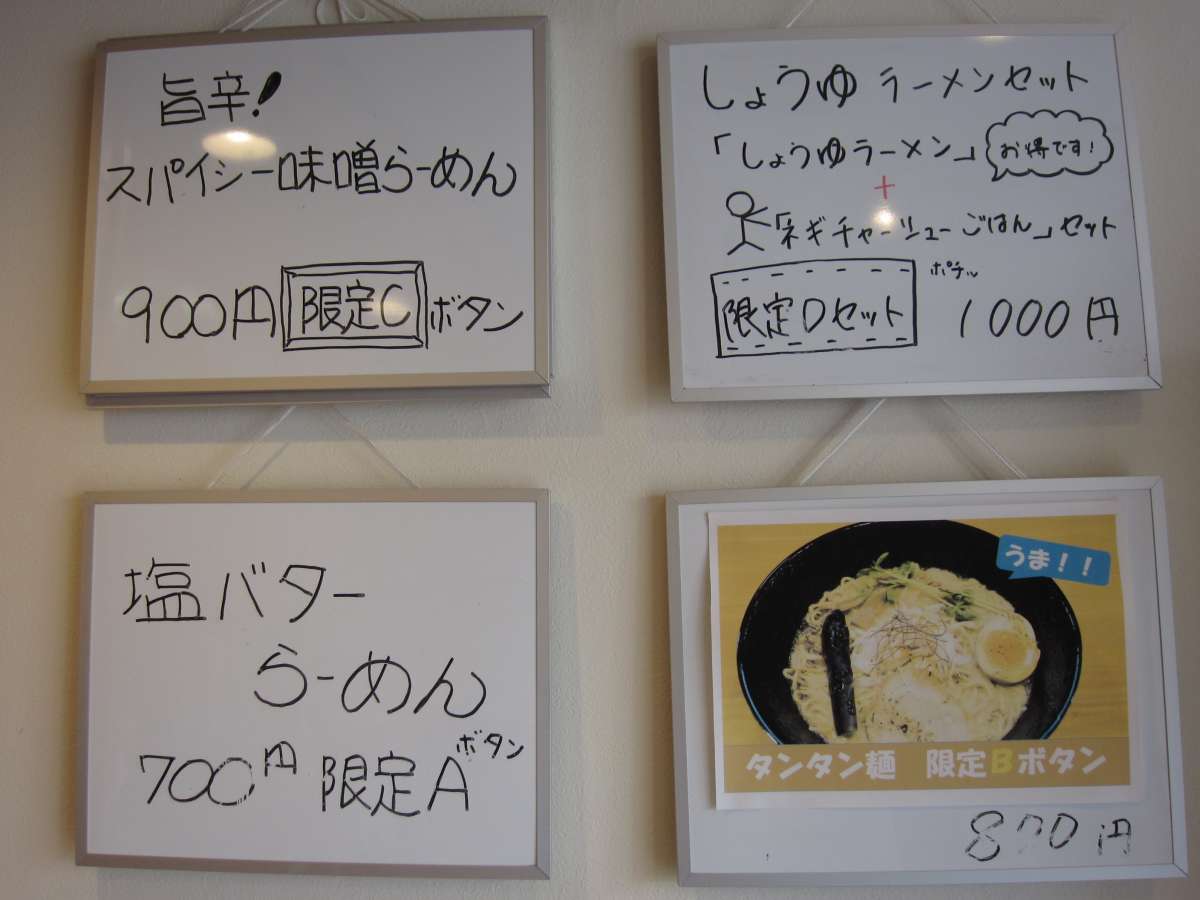 旨辛!
スパイシー味噌らーめん
900円 限定C ボタン
しょうゆ ラーメンセット
「しょうゆラーメン」 お得です!
+
「ネギチャーシューごはん」セット
ポチッ
限定Dセット 1000円
塩バター
らーめん
700円 限定A ボタン
うま!!
タンタン麺 限定Bボタン
800円